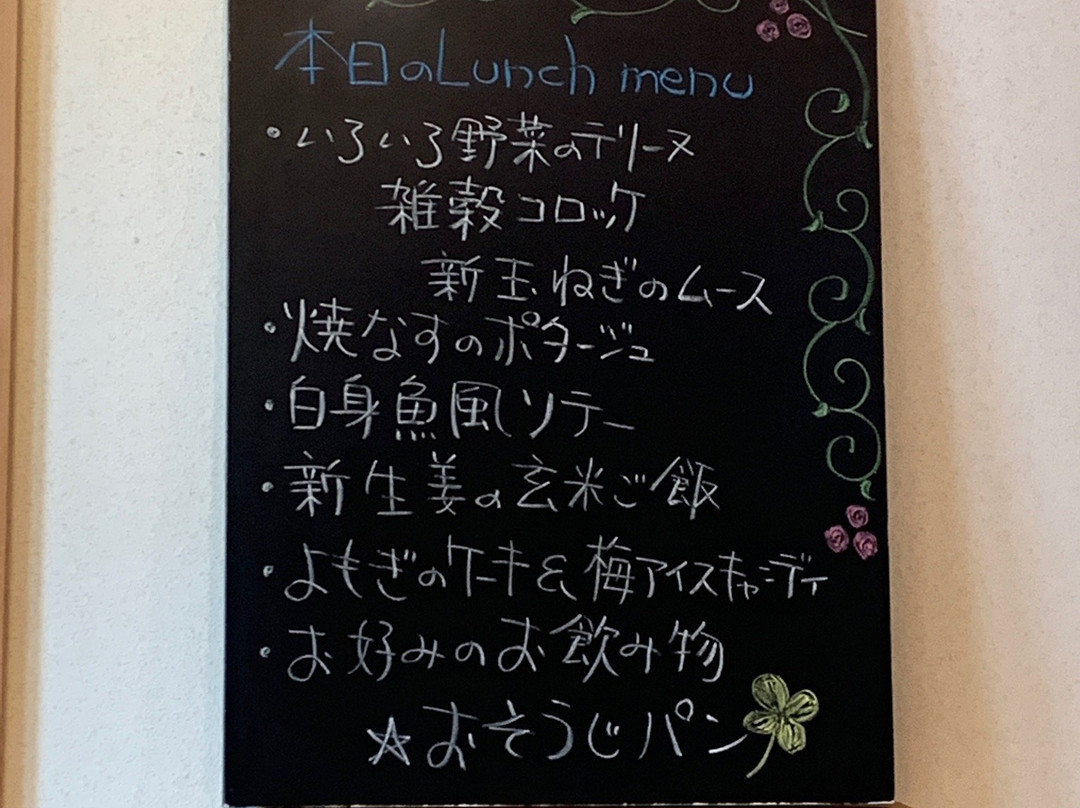 本日のLunch menu
・いろいろ野菜のテリーヌ
雑穀コロッケ
新玉ねぎのムース
・焼なすのポタージュ
・白身魚風ソテー
・新生姜の玄米ご飯
・よもぎのケーキ&梅アイスキャンディ
・お好みのお飲み物
☆おそうじパン